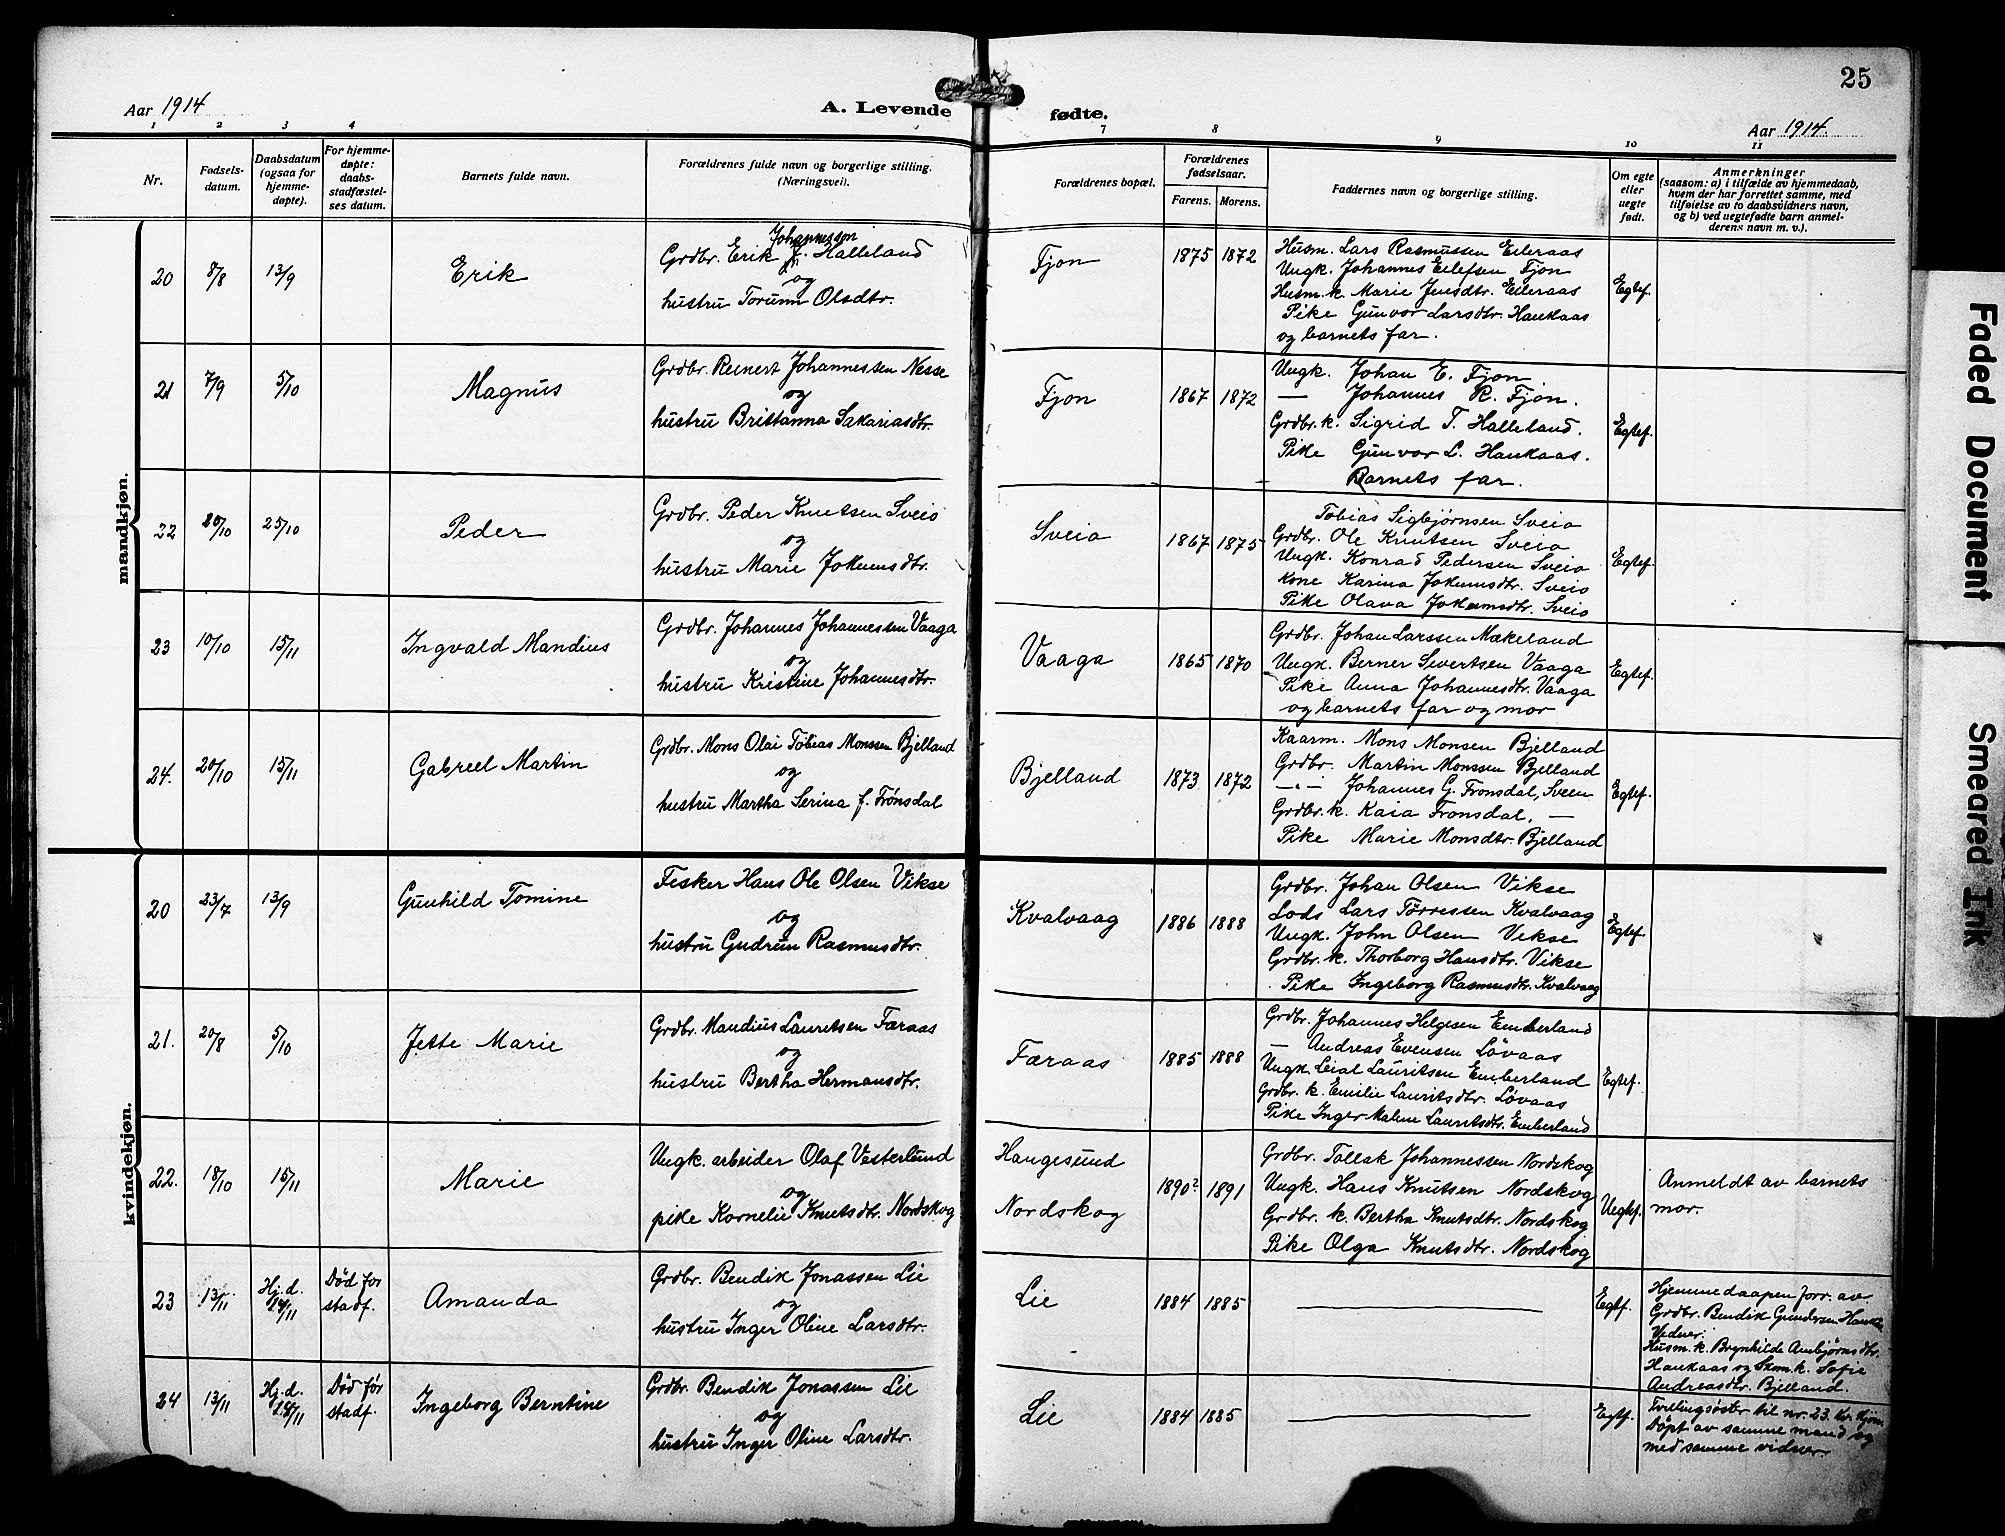 25
Aar 1914
A. Levende fødte.
Aar 1914.
1 2 3 4 7 8 9 10 11
Nr.
Fødsels-
datum.
Daabsdatum
(ogsaa for
hjemme-
døpte).
For hjemme-
døpte:
daabs-
stadfæstel-
ses datum.
Barnets fulde navn.
Forældrenes fulde navn og borgerlige stilling.
(Næringsvei).
Forældrenes bopæl.
Forældrenes
fødselsaar.
Farens. Morens.
Faddernes navn og borgerlige stilling.
Om egte
eller
uegte
født.
Anmerkninger
(saasom: a) i tilfælde av hjemmedaab,
hvem der har forrettet samme, med
tilføielse av to daabsvidners navn,
og b) ved uegtefødte barn anmel-
derens navn m. v.).
mandkjøn.
20 8/8 13/9 Erik
Johannessen
Grdbr. Erik J. Halleland
og
hustru Torunn Olsdtr.
Fjon 1875 1872
Husm. Lars Rasmussen Eileraas
Ungk. Johannes Eilefsen Fjon
Husm. k. Marie Jensdtr. Eileraas
Pike Gunvor Larsdtr. Haukaas
og barnets far.
Egtef.
21 7/9 5/10 Magnus
Grdbr. Reinert Johannessen Nesse
og
hustru Brittanna Sakariasdtr.
Fjon 1867 1872
Ungk. Johan E. Fjon.
— Johannes R. Fjon.
Grdbr. k. Sigrid T. Halleland.
Pike Gunvor L. Haukaas.
Barnets far.
Egtef.
22 20/10 25/10 Peder
Grdbr. Peder Knutsen Sveio
og
hustru Marie Jokumsdtr.
Sveio 1867 1875
Tobias Sigbjørnsen Sveio
Grdbr. Ole Knutsen Sveio
Ungk. Konrad Pedersen Sveio
Kone Karina Jokumsdtr. Sveio
Pike Olava Jokumsdtr. Sveio
Egtef.
23 10/10 15/11 Ingvald Mandius
Grdbr. Johannes Johannessen Vaaga
og
hustru Kristine Johannesdtr.
Vaaga 1865 1870
Grdbr. Johan Larssen Mækeland
Ungk. Berner Sivertsen Vaaga
Pike Anna Johannesdtr. Vaaga
og barnets far og mor
Egtef.
24. 20/10 15/11 Gabriel Martin
Grdbr. Mons Olai Tobias Monssen Bjelland
og
hustru Martha Serina f. Frønsdal
Bjelland 1873 1872
Kaarm. Mons Monsen Bjelland
Grdbr. Martin Monssen Bjelland
—„— Johannes G. Fronsdal, Sveen
Grdbr. k. Kaia Fronsdal, —
Pike Marie Monsdtr. Bjelland
Egtef.
kvindekjøn.
20 23/7 13/9 Gunhild Tomine
Fisker Hans Ole Olsen Vikse
og
hustru Gudrun Rasmusdtr.
Kvalvaag 1886 1888
Grdbr. Johan Olsen Vikse
Lods Lars Tørressen Kvalvaag
Ungk. John Olsen Vikse
Grdbr. k. Thorborg Hansdtr. Vikse
Pike Ingeborg Rasmusdtr. Kvalvaag
Egtef.
21. 20/8 5/10 Jette Marie
Grdbr. Mandius Lauritsen Færaas
og
hustru Bertha Hermansdtr.
Færaas 1885 1888
Grdbr. Johannes Helgesen Emberland
— Andreas Evensen Løvaas
Ungk. Leial Lauritsen Emberland
Grdbr. k. Emilie Lauritsdtr. Løvaas
Pike Inger Maline Lauritsdtr. Emberland
Egtef.
22. 18/10 15/11 Marie
Ungk. arbeider Olaf Vesterlund
og
pike Kornelie Knutsdtr. Nordskog
Haugesund
Nordskog
1890? 1891
Grdbr. Tallak Johannessen Nordskog
Ungk. Hans Knutsen Nordskog
Grdbr. k. Bertha Knutsdtr. Nordskog
Pike Olga Knutsdtr. Nordskog
Uegtef.
Anmeldt av barnets
mor.
23 13/11 Hj.d. 14/11 Død før
stadf.
Amanda
Grdbr. Bendik Jonassen Lie
og
hustru Inger Oline Larsdtr.
Lie 1884 1885
Egtf.
Hjemmedaapen forr. av
Grdbr. Bendik Gundersen
Vidner:
Husm. k. Brynhilde Ambjørnsdtr.
Haukaas og Skom. k. Sofie
Andreasdtr. Bjelland.
24 13/11 Hj.d. 14/11 Død før
stadf.
Ingeborg Berntine
Grdbr. Bendik Jonassen Lie
og
hustru Inger Oline Larsdtr.
Lie 1884 1885
Egtf.
Tvillingsøster til nr. 23. Kv. kjøn.
Døpt av samme mand og
med samme vidner.
Faded Document
Smeared Ink